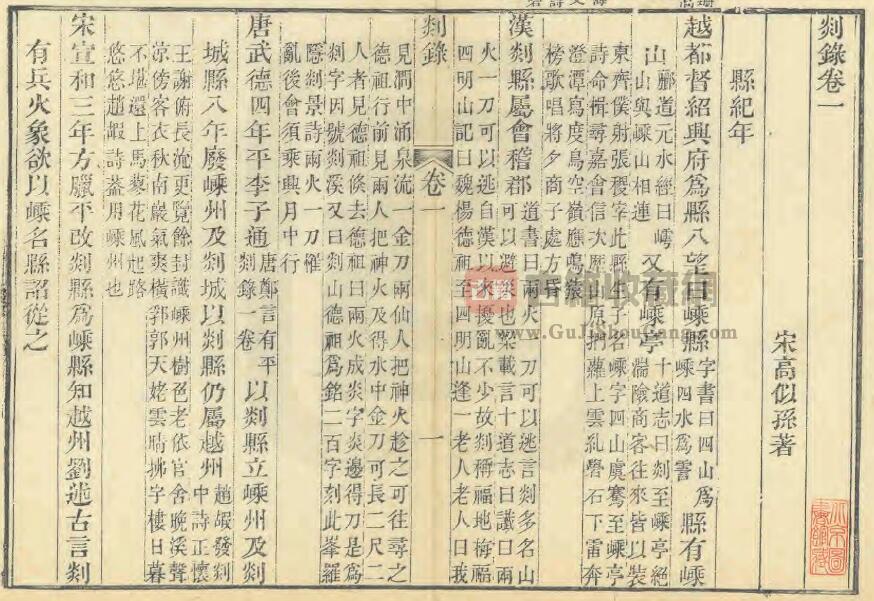 剡錄卷一
宋高似孫著
縣紀年
越都督紹興府爲縣八望曰嵊縣字書曰四山爲嵊四水爲縣有嵊
山酈道元水經曰嶀山與嵊山相連又有嵊亭十道志曰剡至嵊亭絶湍險商客往來皆以裝
東齊僕射張稷宰此縣生子名嵊字四山虞騫至嵊亭
詩命楫尋嘉會信次歷山原捫蘿上雲糺礐石下雷奔
澄潭寫度鳥空嶺應鳴猿
榜歌唱將夕商子處方昏
漢剡縣屬會稽郡道書曰兩火一刀可以逃言剡多名山可以避災也梁載言十道志曰讖曰兩
火一刀可以逃自漢以來擾亂不少故剡稱福地梅福
四明山記曰魏楊德祖至四明山逢一老人老人曰我
剡錄 卷一 一
見澗中涌泉流一金刀兩仙人把神火趁之可往尋之
德祖行前見兩人把神火及得水中金刀可長二尺二
人者見德祖倐去德祖曰兩火成炎字炎邊得刀是爲
剡字因號剡溪又曰剡山德祖爲銘二百字刻此峯羅
隱剡景詩兩火一刀罹
亂後會須乘興月中行
唐武德四年平李子通唐鄭言有平剡錄一卷以剡縣立嵊州及剡
城縣八年廢嵊州及剡城以剡縣仍屬越州趙嘏發剡中詩正懷
王謝俯長流更覽餘封識嵊州樹色老依官舍晚溪聲
涼傍客衣秋南巖氣爽橫郛郭天姥雲晴拂字樓日暮
不堪還上馬蓼花風起路
悠悠趙嘏詩蓋用嵊州也
宋宣和三年方臘平改剡縣爲嵊縣知越州劉述古言剡
有兵火象欲以嵊名縣詔從之
古籍收藏網
www.GuJiShouCang.com